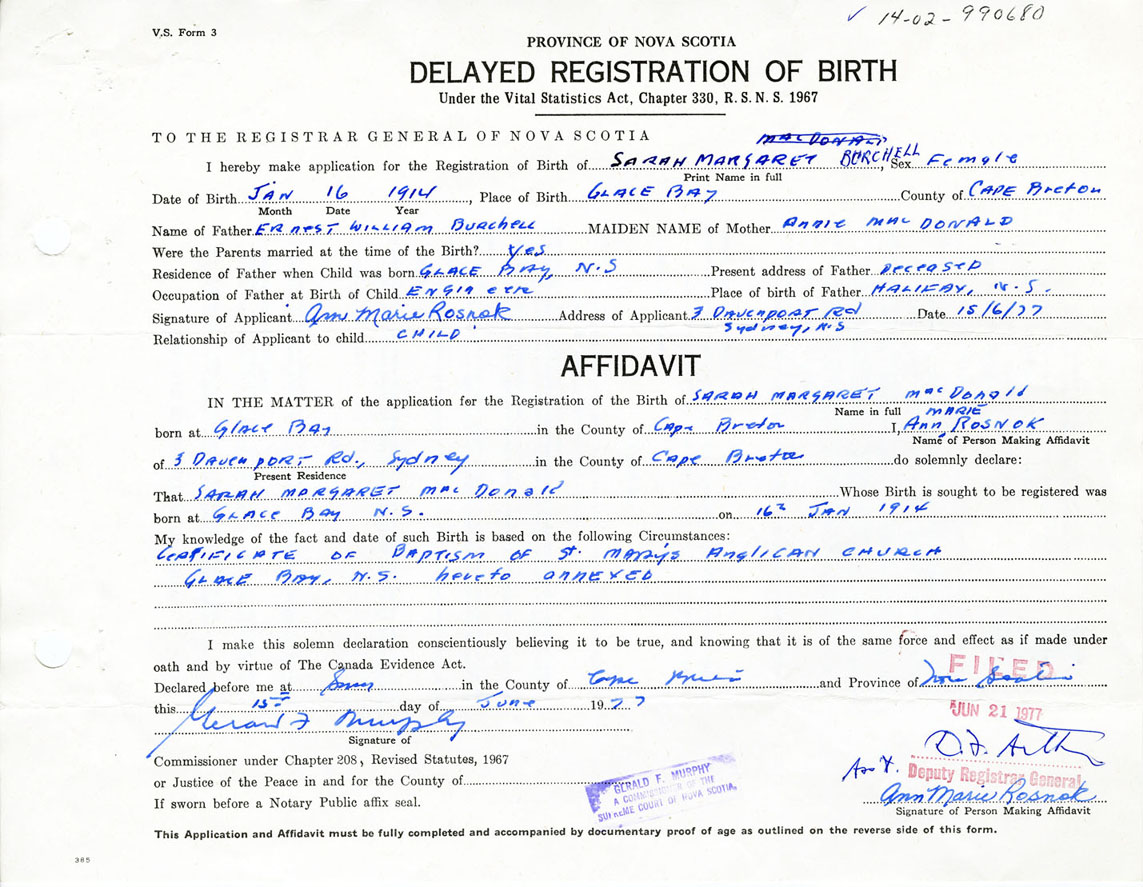 ✓ 14-02-990680
V.S. Form 3
PROVINCE OF NOVA SCOTIA
DELAYED REGISTRATION OF BIRTH
Under the Vital Statistics Act, Chapter 330, R.S.N.S. 1967
TO THE REGISTRAR GENERAL OF NOVA SCOTIA
MACDONALD
I hereby make application for the Registration of Birth of SARAH MARGARET BURCHELL, Sex Female
Print Name in full
Date of Birth JAN 16 1914, Place of Birth GLACE BAY County of CAPE Breton
Month Date Year
Name of Father ERNEST WILLIAM Burchell MAIDEN NAME of Mother ANNIE MAC DONALD
Were the Parents married at the time of the Birth? Yes
Residence of Father when Child was born GLACE BAY, N.S Present address of Father DECEASED
Occupation of Father at Birth of Child ENGINEER Place of birth of Father HALIFAX, N.S.
Signature of Applicant Ann Marie Rosnok Address of Applicant 3 DAVENPORT Rd Date 15/6/77
Sydney, N.S
Relationship of Applicant to child CHILD
AFFIDAVIT
IN THE MATTER of the application for the Registration of the Birth of SARAH MARGARET MacDonald
Name in full MARIE
born at Glace Bay in the County of Cape Breton I, Ann ROSNOK
Name of Person Making Affidavit
of 3 DAVENPORT Rd., Sydney in the County of Cape Breton do solemnly declare:
Present Residence
That SARAH MARGARET MAC Donald Whose Birth is sought to be registered was
born at GLACE BAY N.S. on 16th JAN 1914
My knowledge of the fact and date of such Birth is based on the following Circumstances:
CERTIFICATE OF BAPTISM OF St. MARY'S ANGLICAN CHURCH
GLACE BAY, N.S. hereto ANNEXED
I make this solemn declaration conscientiously believing it to be true, and knowing that it is of the same force and effect as if made under
oath and by virtue of The Canada Evidence Act.
FILED
Declared before me at Sydney in the County of Cape Breton and Province of Nova Scotia
this 15th day of June 1977
JUN 21 1977
Gerald F Murphy
Signature of
Commissioner under Chapter 208, Revised Statutes, 1967
or Justice of the Peace in and for the County of
If sworn before a Notary Public affix seal.
GERALD F. MURPHY
A COMMISSIONER OF THE
SUPREME COURT OF NOVA SCOTIA.
Deputy Registrar General
Ann Marie Rosnok
Signature of Person Making Affidavit
This Application and Affidavit must be fully completed and accompanied by documentary proof of age as outlined on the reverse side of this form.
385